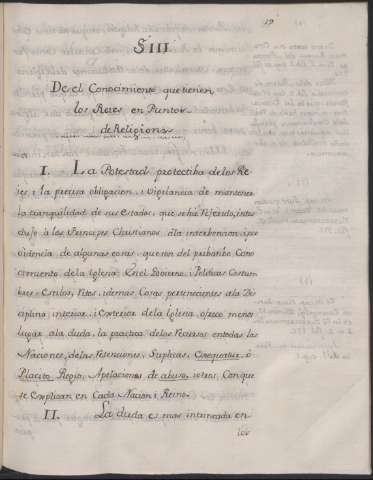 19
§ III
De el Conocimiento que tienen
los Reyes en Puntos
de Religion
I. La Potestad protectiba de los Re-
ies i la precisa obligacion, i Vigilancia de mantener
la tranquilidad de sus estados, que se há referido, intro
dujo á los Principes Christianos á la interbencion, i pro
videncia de algunas cosas, que son del pribatibo Cono
cimiento de la Iglesia. En el Govierno, i Politicas Costum
bres, Estilos, Ritos, i demas Cosas pertenecientes a la Dis
ciplina interior, i exterior de la Iglesia, ofrece menos
lugar á la duda, la practica de los Recursos en todas las
Naciones, de las Retenciones, Suplicas, Exequatur, ó
Placito Regio, Apelaciones de abuso, i otros, Con que
se Explican en Cada Nacion i Reino.
II. La duda es mas intrincada en
los